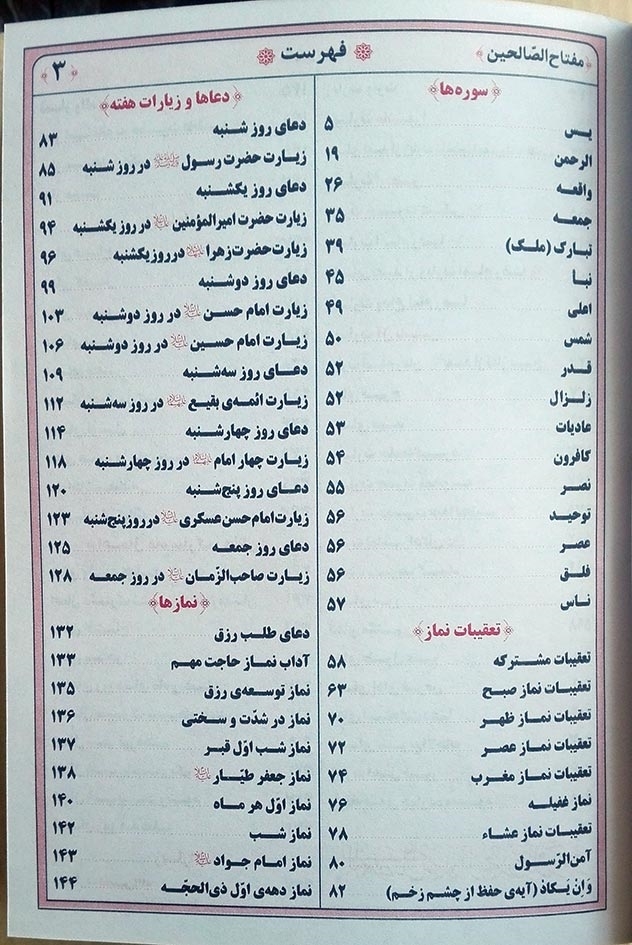 ﴿مفتاح الصّالحین﴾ فهرست ﴿۳﴾
﴿سوره‌ها﴾
یس ۵
الرحمن ۱۹
واقعه ۲۶
جمعه ۳۵
تبارک (ملک) ۳۹
نبا ۴۵
اعلی ۴۹
شمس ۵۰
قدر ۵۲
زلزال ۵۲
عادیات ۵۳
کافرون ۵۴
نصر ۵۵
توحید ۵۶
عصر ۵۶
فلق ۵۶
ناس ۵۷
﴿تعقیبات نماز﴾
تعقیبات مشترکه ۵۸
تعقیبات نماز صبح ۶۳
تعقیبات نماز ظهر ۷۰
تعقیبات نماز عصر ۷۲
تعقیبات نماز مغرب ۷۴
نماز غفیله ۷۶
تعقیبات نماز عشاء ۷۸
آمن الرّسول ۸۰
وَاِنْ یَکادُ (آیه‌ی حفظ از چشم زخم) ۸۲
﴿دعاها و زیارات هفته﴾
دعای روز شنبه ۸۳
زیارت حضرت رسول ﷺ در روز شنبه ۸۵
دعای روز یکشنبه ۹۱
زیارت حضرت امیرالمؤمنین علیه‌السلام در روز یکشنبه ۹۴
زیارت حضرت زهرا علیهاالسلام در روز یکشنبه ۹۶
دعای روز دوشنبه ۹۹
زیارت امام حسن علیه‌السلام در روز دوشنبه ۱۰۳
زیارت امام حسین علیه‌السلام در روز دوشنبه ۱۰۶
دعای روز سه‌شنبه ۱۰۹
زیارت ائمه‌ی بقیع علیهم‌السلام در روز سه‌شنبه ۱۱۲
دعای روز چهارشنبه ۱۱۴
زیارت چهار امام علیهم‌السلام در روز چهارشنبه ۱۱۸
دعای روز پنج‌شنبه ۱۲۰
زیارت امام حسن عسکری علیه‌السلام در روز پنج‌شنبه ۱۲۳
دعای روز جمعه ۱۲۵
زیارت صاحب الزّمان علیه‌السلام در روز جمعه ۱۲۸
﴿نمازها﴾
دعای طلب رزق ۱۳۲
آداب نماز حاجت مهم ۱۳۳
نماز توسعه‌ی رزق ۱۳۵
نماز در شدّت و سختی ۱۳۶
نماز شب اوّل قبر ۱۳۷
نماز جعفر طیّار علیه‌السلام ۱۳۸
نماز اوّل هر ماه ۱۴۰
نماز شب ۱۴۲
نماز امام جواد علیه‌السلام ۱۴۳
نماز دهه‌ی اوّل ذی الحجّه ۱۴۴